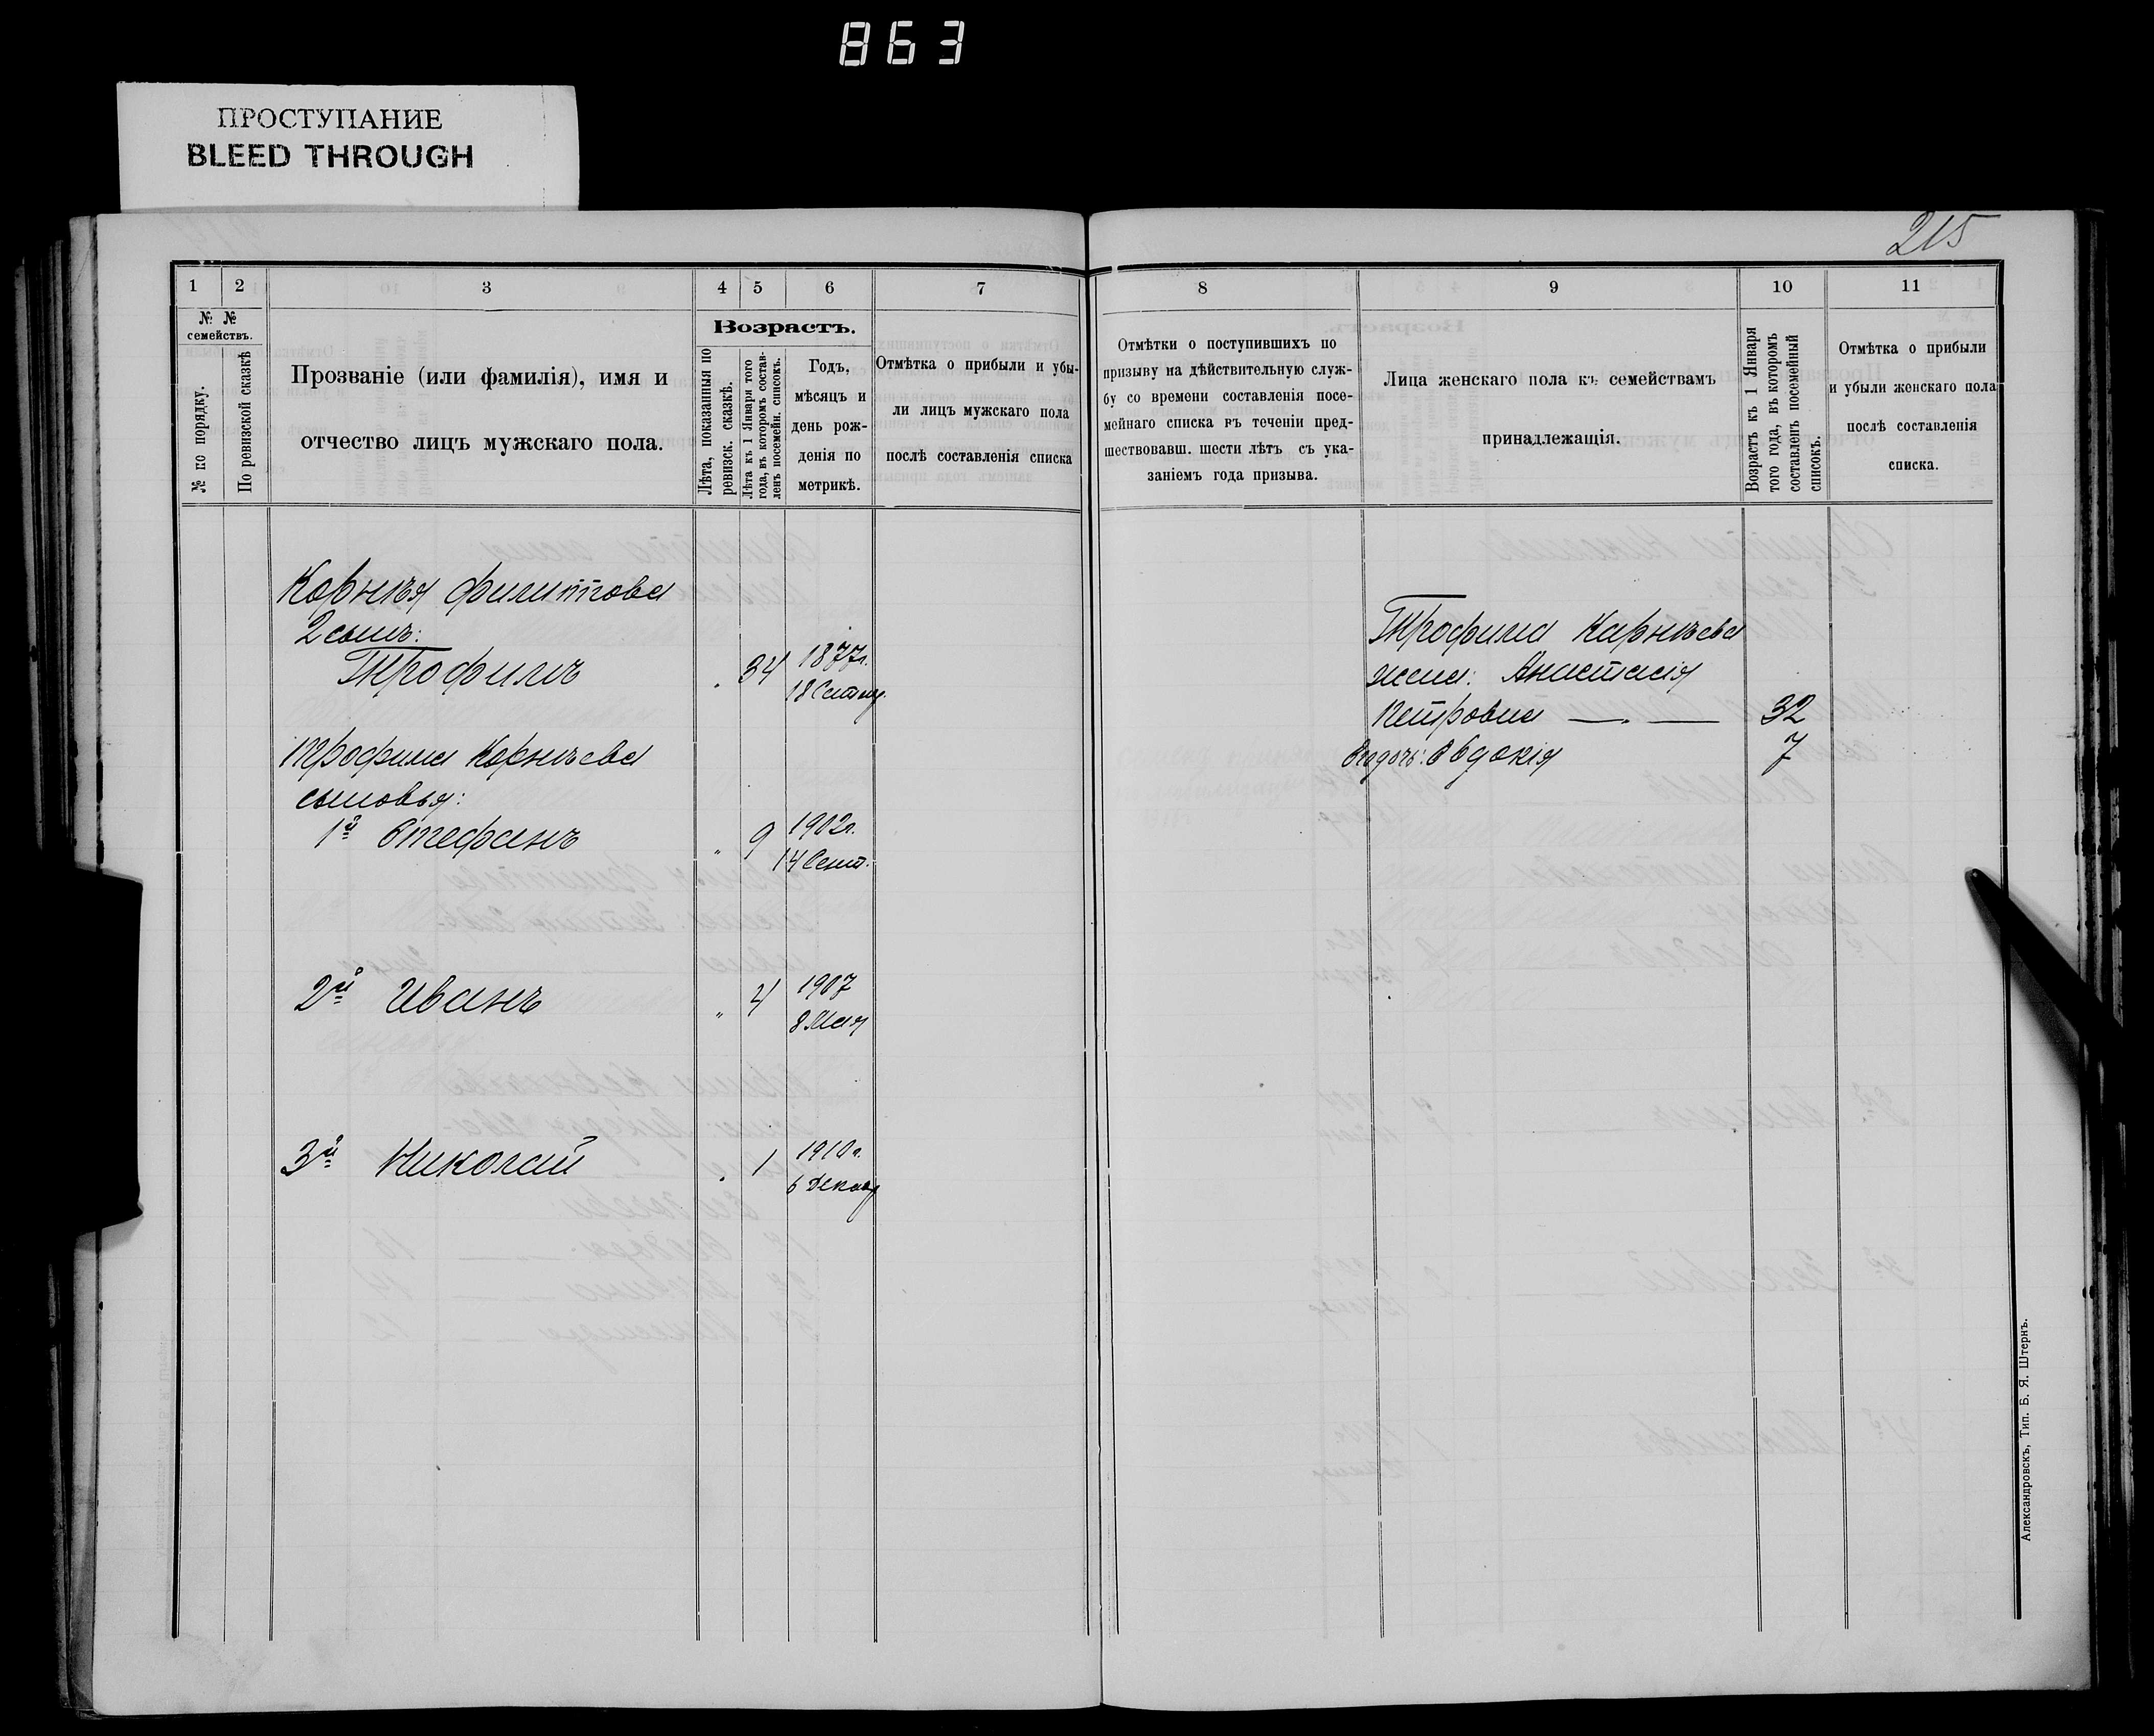 863
ПРОСТУПАНИЕ
BLEED THROUGH
215
1 2 3 4 5 6 7 8 9 10 11
№ № семействъ.
№ по порядку.
По ревизской сказкѣ
Прозваніе (или фамилія), имя и
отчество лицъ мужскаго пола.
Возрастъ.
Лѣта, показанныя по
ревизск. сказкѣ.
Лѣта къ 1 Января того
года, въ которомъ состав-
ленъ посемейн. списокъ.
Годъ,
мѣсяцъ и
день рож-
денія по
метрикѣ.
Отмѣтка о прибыли и убы-
ли лицъ мужскаго пола
послѣ составленія списка
Отмѣтки о поступившихъ по
призыву на дѣйствительную служ-
бу со времени составленія посе-
мейнаго списка въ теченіи пред-
шествовавш. шести лѣтъ съ ука-
заніемъ года призыва.
Лица женскаго пола къ семействамъ
принадлежащія.
Возрастъ къ 1 Января
того года, въ которомъ
составленъ посемейный
списокъ.
Отмѣтка о прибыли
и убыли женскаго пола
послѣ составленія
списка.
Корнѣя Филиппова
2 сынъ:
Трофимъ 34 1877г.
18 Сентяб.
Трофима Корнѣева
сыновья:
1й Стефанъ " 9 1902г.
14 Сент.
2й Иванъ " 4 1907
8 Мая
3й Николай 1 1910г.
6 Декаб
Трофима Карнѣева
жена: Анастасія
Петровна — . — 32
Его дочь: Евдокія 7
Александровскъ, Тип. Б. Я. Штернъ.